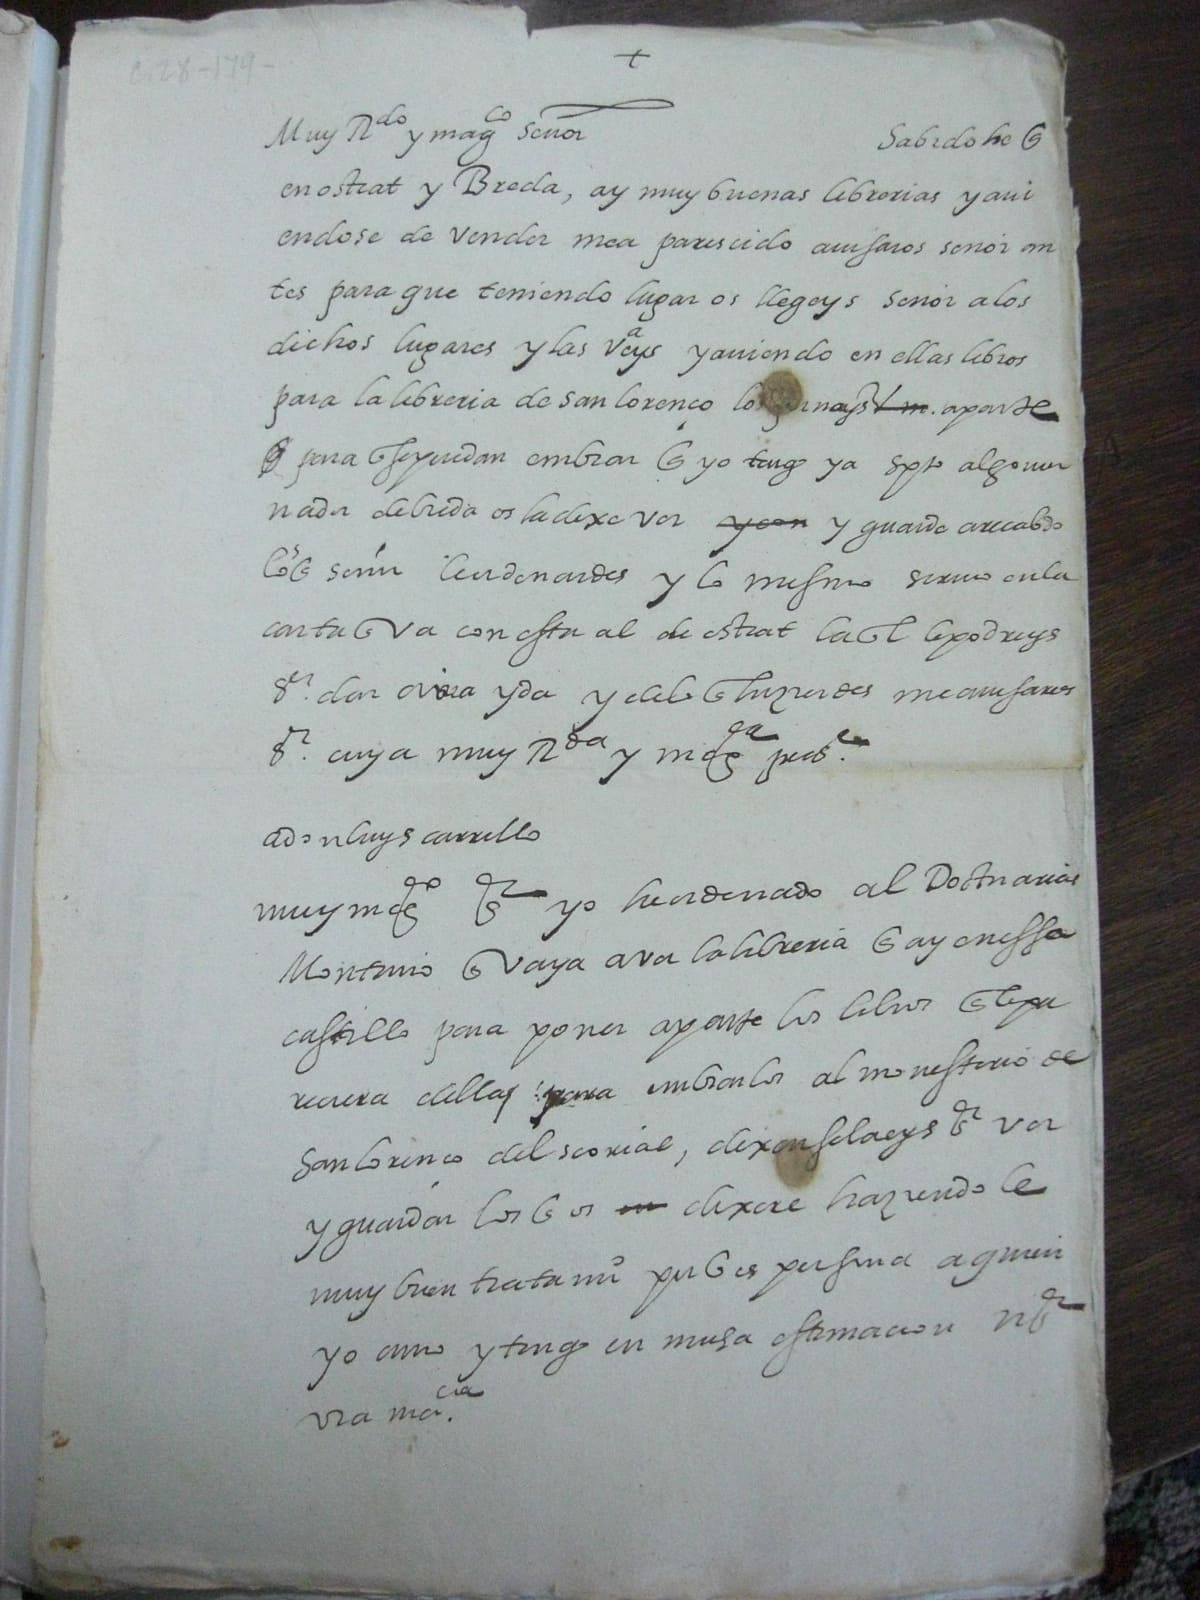 C. 28-179-
+
Muy Rdo y magco señor Sabido he q̃
en ostrat y Breda, ay muy buenas librerias y avi
endose de vender mea parescido avisaros señor an
tes para que teniendo lugar os llegeys señor a los
dichos lugares y las veays y aviendo en ellas libros
para la libreria de san lorenço los aparte
para q̃ se puedan embiar q̃ yo tengo ya spto al gover
nador de breda os la dexe ver y con y guarde a recabdo
los q̃ señor le ordenardes y lo mesmo scrivo en la
carta q̃ va con esta al de ostrat la ql le podreys
sor. dar o yda y del q̃ hizierdes me avisares
sor. cuya muy Rda y magca
a don luys carrillo
muy magco sor yo he ordenado al Doctor arias
Montano q̃ vaya a ver la libreria q̃ ay en esse
castillo para poner aparte los libros q̃ le pa
reciera dellas para embiarlos al monesterio de
san lorenço del scorial, dexarselaeys sor ver
y guardar los q̃ os dixere haziendole
muy buen tratamo porq̃ es persona a quien
yo amo y tengo en mucha estimacion não sor
vra